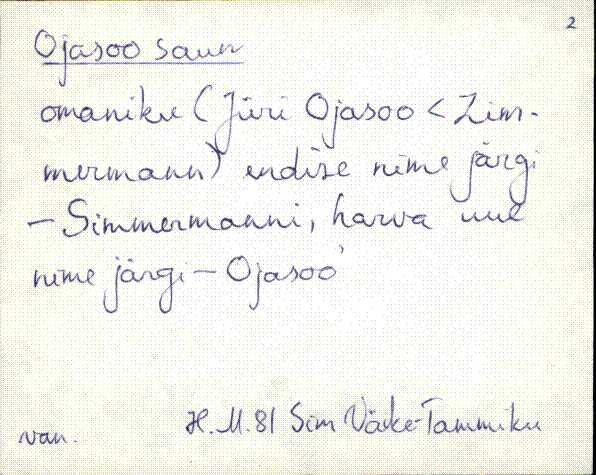 2
Ojasoo saun
omaniku (Jüri Ojasoo < Zim-
mermann) endise nime järgi
– Simmermanni, harva uue
nime järgi – Ojasoo'
van. H. M. 81 Sim Väike-Tammiku